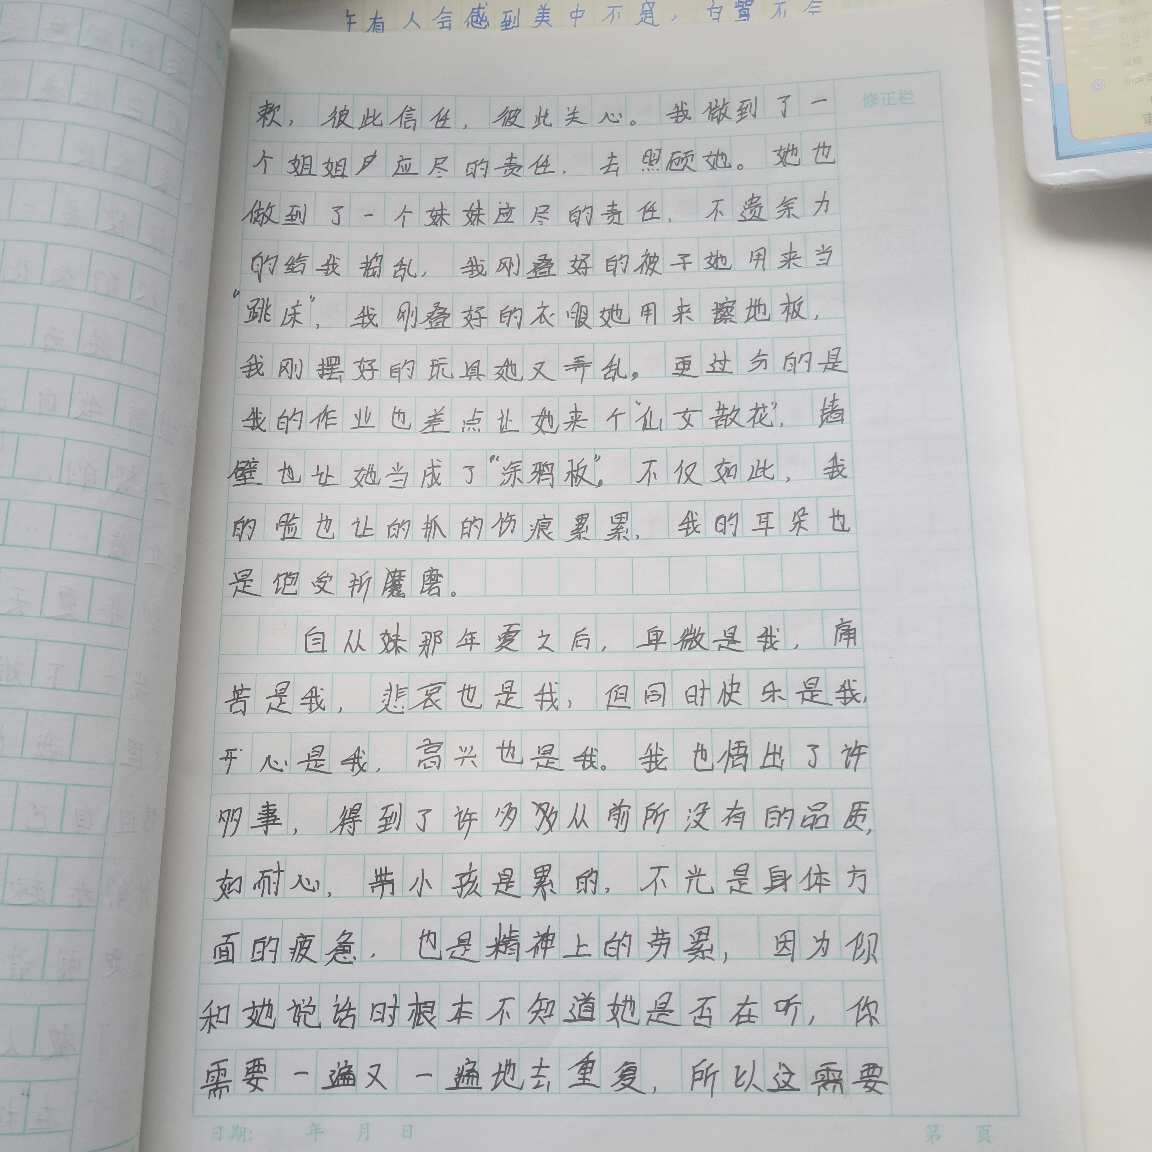 年有人会感到美中不足，白璧不全
修正栏
款，彼此信任，彼此关心。我做到了一
个姐姐应尽的责任，去照顾她。她也
做到了一个妹妹应尽的责任，不遗余力
的给我捣乱，我刚叠好的被子她用来当
“跳床”，我刚叠好的衣服她用来擦地板，
我刚摆好的玩具她又弄乱。更过分的是
我的作业也差点让她来个“仙女散花”，墙
壁也让她当成了“涂鸦板”。不仅如此，我
的脸也让的抓的伤痕累累，我的耳朵也
是饱受折魔磨。
自从妹那年夏之后，卑微是我，痛
苦是我，悲哀也是我，但同时快乐是我，
开心是我，高兴也是我。我也悟出了许
多事，得到了许多多从前所没有的品质，
如耐心，带小孩是累的，不光是身体方
面的疲惫，也是精神上的劳累，因为你
和她说话时根本不知道她是否在听，你
需要一遍又一遍地去重复，所以这需要
日期： 年 月 日
第 页